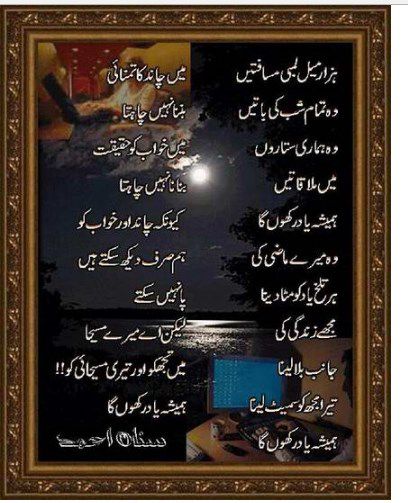 ہزار میل لمبی مسافتیں
وہ تمام شب کی باتیں
وہ ہماری ستاروں
میں ملاقاتیں
ہمیشہ یاد رکھوں گا
وہ میرے ماضی کی
ہر تلخ یاد کو مٹا دینا
مجھے زندگی کی
جانب بلا لینا
تیرا مجھ کو سمیٹ لینا
ہمیشہ یاد رکھوں گا
میں چاند کا تمنائی
بننا نہیں چاہتا
میں خواب کو حقیقت
بنانا نہیں چاہتا
کیونکہ چاند اور خواب کو
ہم صرف دیکھ سکتے ہیں
پا نہیں سکتے
لیکن اے میرے مسیحا
میں تجھکو اور تیری مسیحائی کو!!
ہمیشہ یاد رکھوں گا
سنان احمد